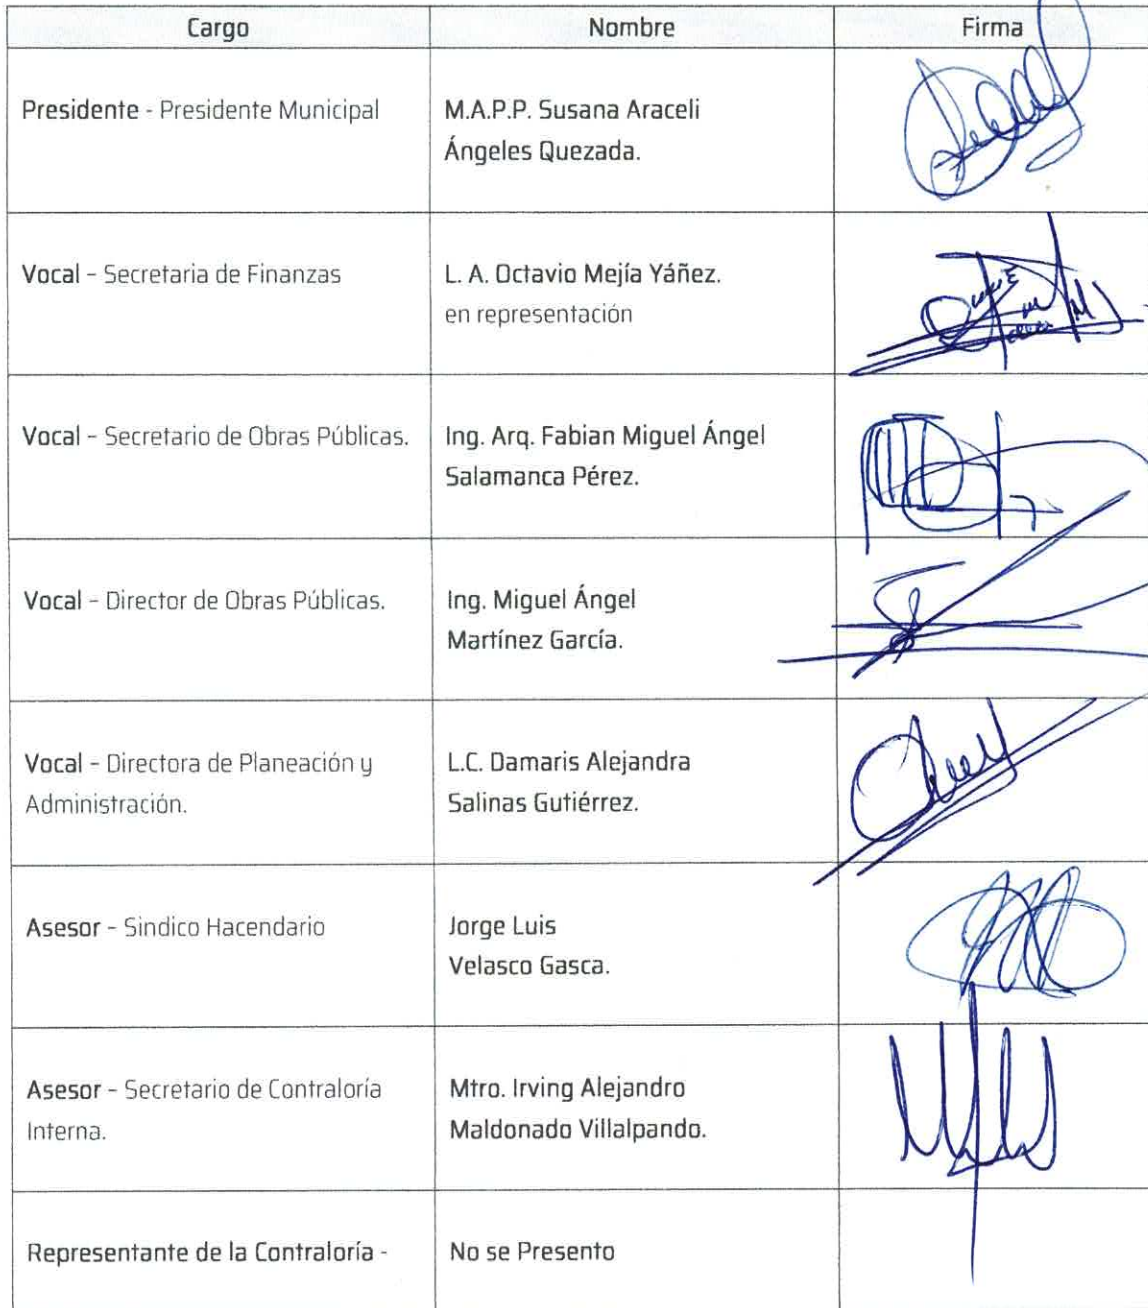 Cargo Nombre Firma
Presidente - Presidente Municipal
M.A.P.P. Susana Araceli
Ángeles Quezada.
Vocal – Secretaria de Finanzas
L. A. Octavio Mejía Yáñez.
en representación
Vocal – Secretario de Obras Públicas.
Ing. Arq. Fabian Miguel Ángel
Salamanca Pérez.
Vocal – Director de Obras Públicas.
Ing. Miguel Ángel
Martínez García.
Vocal – Directora de Planeación y
Administración.
L.C. Damaris Alejandra
Salinas Gutiérrez.
Asesor – Sindico Hacendario
Jorge Luis
Velasco Gasca.
Asesor – Secretario de Contraloría
Interna.
Mtro. Irving Alejandro
Maldonado Villalpando.
Representante de la Contraloría -
No se Presento